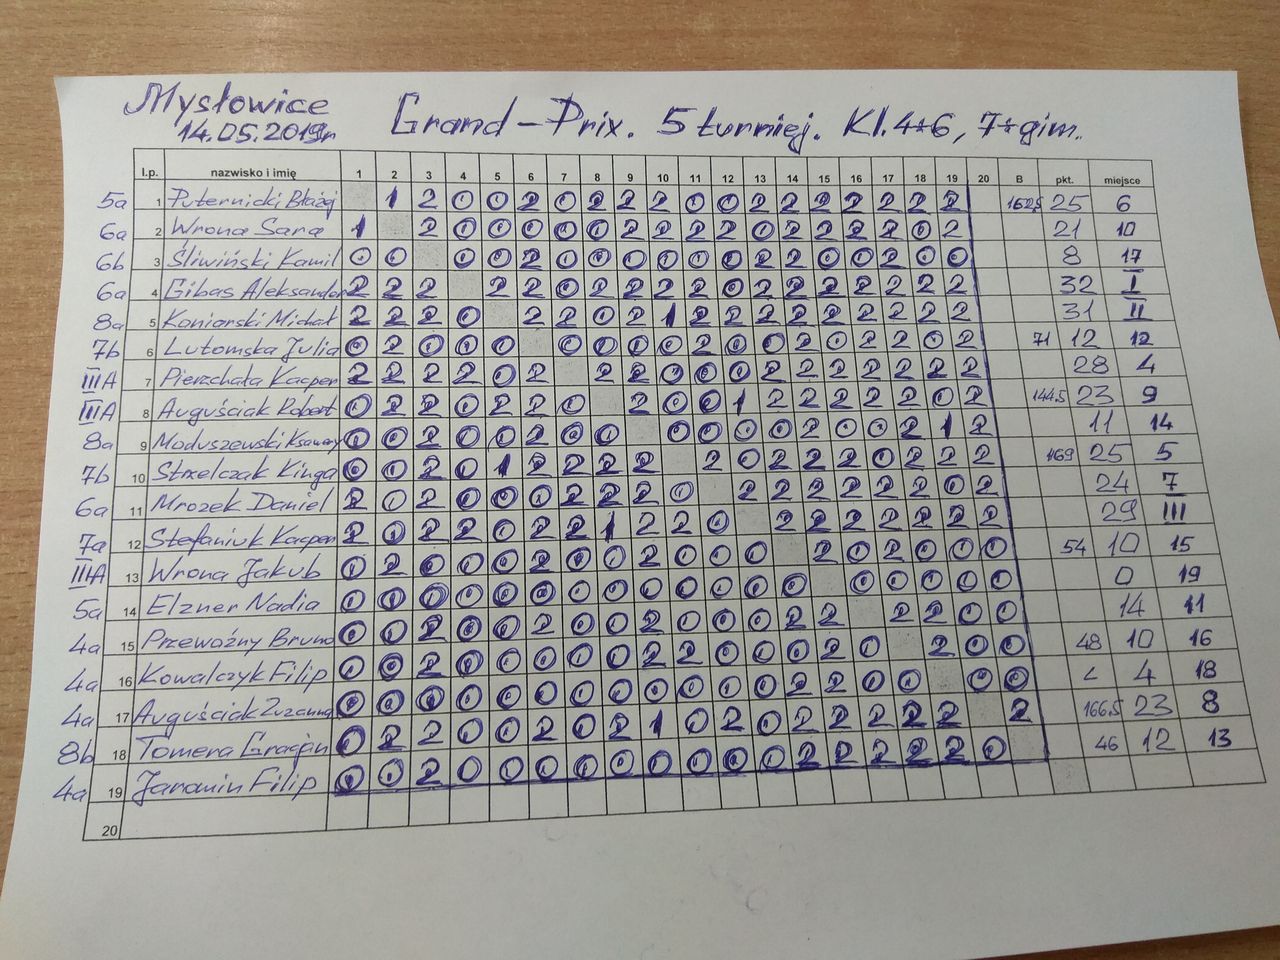 Mysłowice
14.05.2019r
Grand-Prix. 5 turniej. Kl. 4÷6, 7÷gim.
l.p. nazwisko i imię 1 2 3 4 5 6 7 8 9 10 11 12 13 14 15 16 17 18 19 20 B pkt. miejsce
5a 1 Puternicki Błażej 1 2 0 0 2 0 2 2 2 0 0 2 2 2 2 2 2 2 162,5 25 6
6a 2 Wrona Sara 1 2 0 0 0 0 0 2 2 2 2 0 2 2 2 2 0 2 21 10
6b 3 Śliwiński Kamil 0 0 0 0 2 0 0 0 0 0 0 2 2 0 0 2 0 0 8 17
6a 4 Gibas Aleksander 2 2 2 2 2 0 2 2 2 2 0 2 2 2 2 2 2 2 32 I
8a 5 Koniarski Michał 2 2 2 0 2 2 0 2 1 2 2 2 2 2 2 2 2 2 31 II
7b 6 Lutomska Julia 0 2 0 0 0 0 0 0 0 2 0 0 2 0 2 2 0 2 71 12 12
IIIA 7 Pierzchała Kacper 2 2 2 2 0 2 2 2 0 0 0 2 2 2 2 2 2 2 28 4
IIIA 8 Auguściak Robert 0 2 2 0 2 2 0 2 0 0 1 2 2 2 2 2 0 2 144,5 23 9
8a 9 Moduszewski Ksawery 0 0 2 0 0 2 0 0 0 0 0 0 2 0 0 2 1 2 11 14
7b 10 Strzelczak Kinga 0 0 2 0 1 2 2 2 2 2 0 2 2 2 0 2 2 2 169 25 5
6a 11 Mrozek Daniel 2 0 2 0 0 0 2 2 2 0 2 2 2 2 2 2 0 2 24 7
7a 12 Stefaniuk Kacper 2 0 2 2 0 2 2 1 2 2 0 2 2 2 2 2 2 2 29 III
IIIA 13 Wrona Jakub 0 2 0 0 0 2 0 0 2 0 0 0 2 0 2 0 0 0 54 10 15
5a 14 Elzner Nadia 0 0 0 0 0 0 0 0 0 0 0 0 0 0 0 0 0 0 0 19
4a 15 Przewoźny Bruno 0 0 2 0 0 2 0 0 2 0 0 0 2 2 2 2 0 0 14 11
4a 16 Kowalczyk Filip 0 0 2 0 0 0 0 0 2 2 0 0 0 2 0 2 0 0 48 10 16
4a 17 Auguściak Zuzanna 0 0 0 0 0 0 0 0 0 0 0 0 2 2 0 0 0 0 4 18
8b 18 Tomera Gracjan 0 2 2 0 0 2 0 2 1 0 2 0 2 2 2 2 2 2 166,5 23 8
4a 19 Jaromin Filip 0 0 2 0 0 0 0 0 0 0 0 0 2 2 2 2 2 0 46 12 13
20